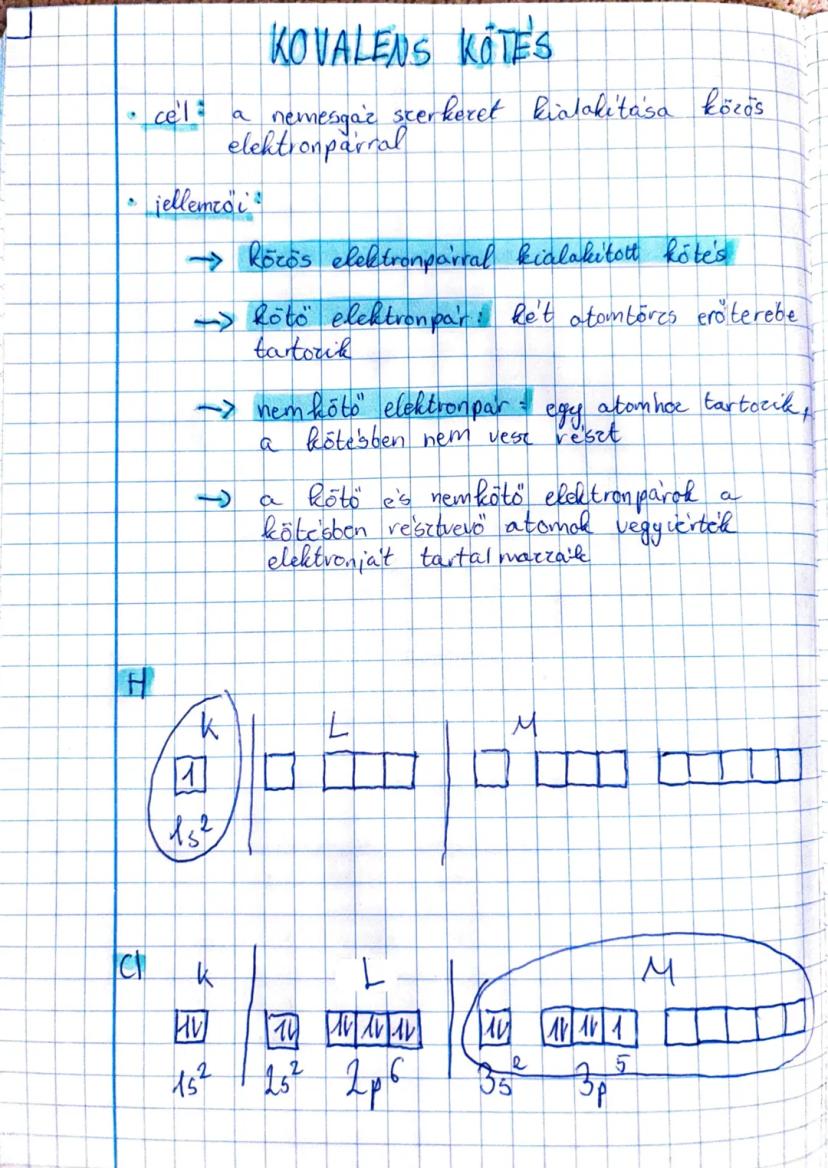 KOVALENS KÖTÉS
• cél: a nemesgáz szerkezet kialakítása közös
elektronpárral
• jellemzői:
→ közös elektronpárral kialakított kötés
→ kötő elektronpár: két atomtörzs erőterébe
tartozik
→ nemkötő elektronpár: egy atomhoz tartozik,
a kötésben nem vesz részt
→ a kötő és nemkötő elektronpárok a
kötésben résztvevő atomok vegyérték
elektronját tartalmazzák
H
K L M
1
1s²
Cl K L M
1s² 2s² 2p⁶ 3s² 3p⁵